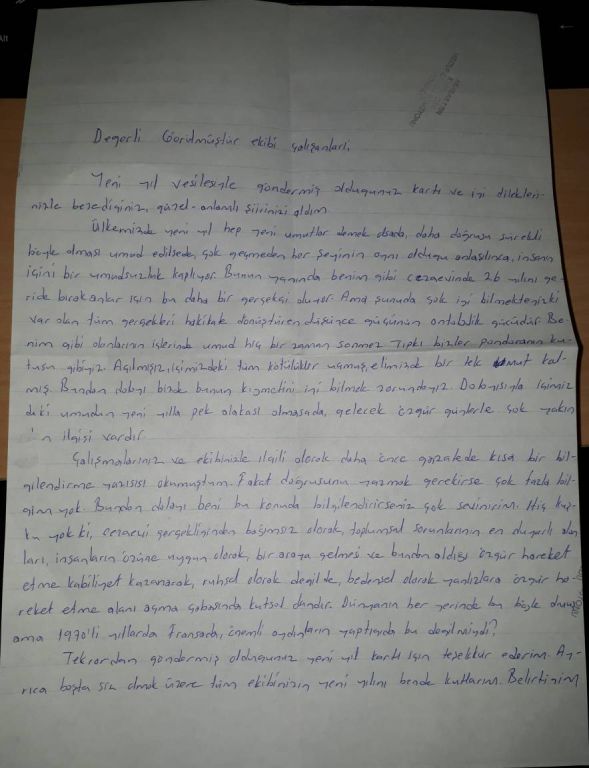 Degerli Görülmüştür ekibi çalışanları,
Yeni yıl vesilesiyle göndermiş olduğunuz kartı ve iyi dilekleri-
nizle bezediğiniz, güzel-anlamlı şiirinizi aldım.
Ülkemizde yeni yıl hep yeni umutlar demek olsada, daha doğrusu sürekli
böyle olması umud edilsede, çok geçmeden her şeyinin aynı olduğu anlaşılınca, insanın
içini bir umudsuzluk kaplıyor. Bunun yanında benim gibi cezaevinde 26 yılını ge-
ride bırakanlar için bu daha bir gerçekçi oluyor. Ama şunuda çok iyi bilmekteyizki
var olan tüm gerçekleri hakikate dönüştüren düşünce gücünün ontolojik gücüdür. Be-
nim gibi olanların içlerinde umud hiç bir zaman sönmez. Tıpkı bizler pandoranın ku-
tusu gibiyiz. Açılmışız, içimizdeki tüm kötülükler uçmuş, elimizde bir tek umut kal-
mış. Bundan dolayı bizde bunun kıymetini iyi bilmek zorundayız. Dolayısıyla içimiz
deki umudun yeni yılla pek alakası olmasada, gelecek özgür günlerle çok yakın
ilgisi vardır.
Çalışmalarınız ve ekibinizle ilgili olarak daha önce gazetede kısa bir bil-
gilendirme yazısısı okumuştum. Fakat doğrusunu yazmak gerekirse çok fazla bil-
gim yok. Bundan dolayı beni bu konuda bilgilendirirseniz çok sevinirim. Hiç kuş-
ku yok ki, cezaevi gerçekliğinden bağımsız olarak, toplumsal sorunlarının en duyarlı olan
ları, insanların özüne uygun olarak, bir araya gelmesi ve bundan aldığı özgür hareket
etme kabiliyet kazanarak, ruhsal olarak değilde, bedensel olarak yanlızlara özgür ha-
reket etme alanı açma çabasında kutsal olandır. Dünyanın her yerinde bu böyle
ama 1970'li yıllarda Fransada, önemli aydınların yaptığıda bu değilmiydi?
Tekrardan göndermiş olduğunuz yeni yıl kartı için teşekkür ederim. Ay-
rıca başta siz olmak üzere tüm ekibinizin yeni yılını bende kutlarım. Belirtinim